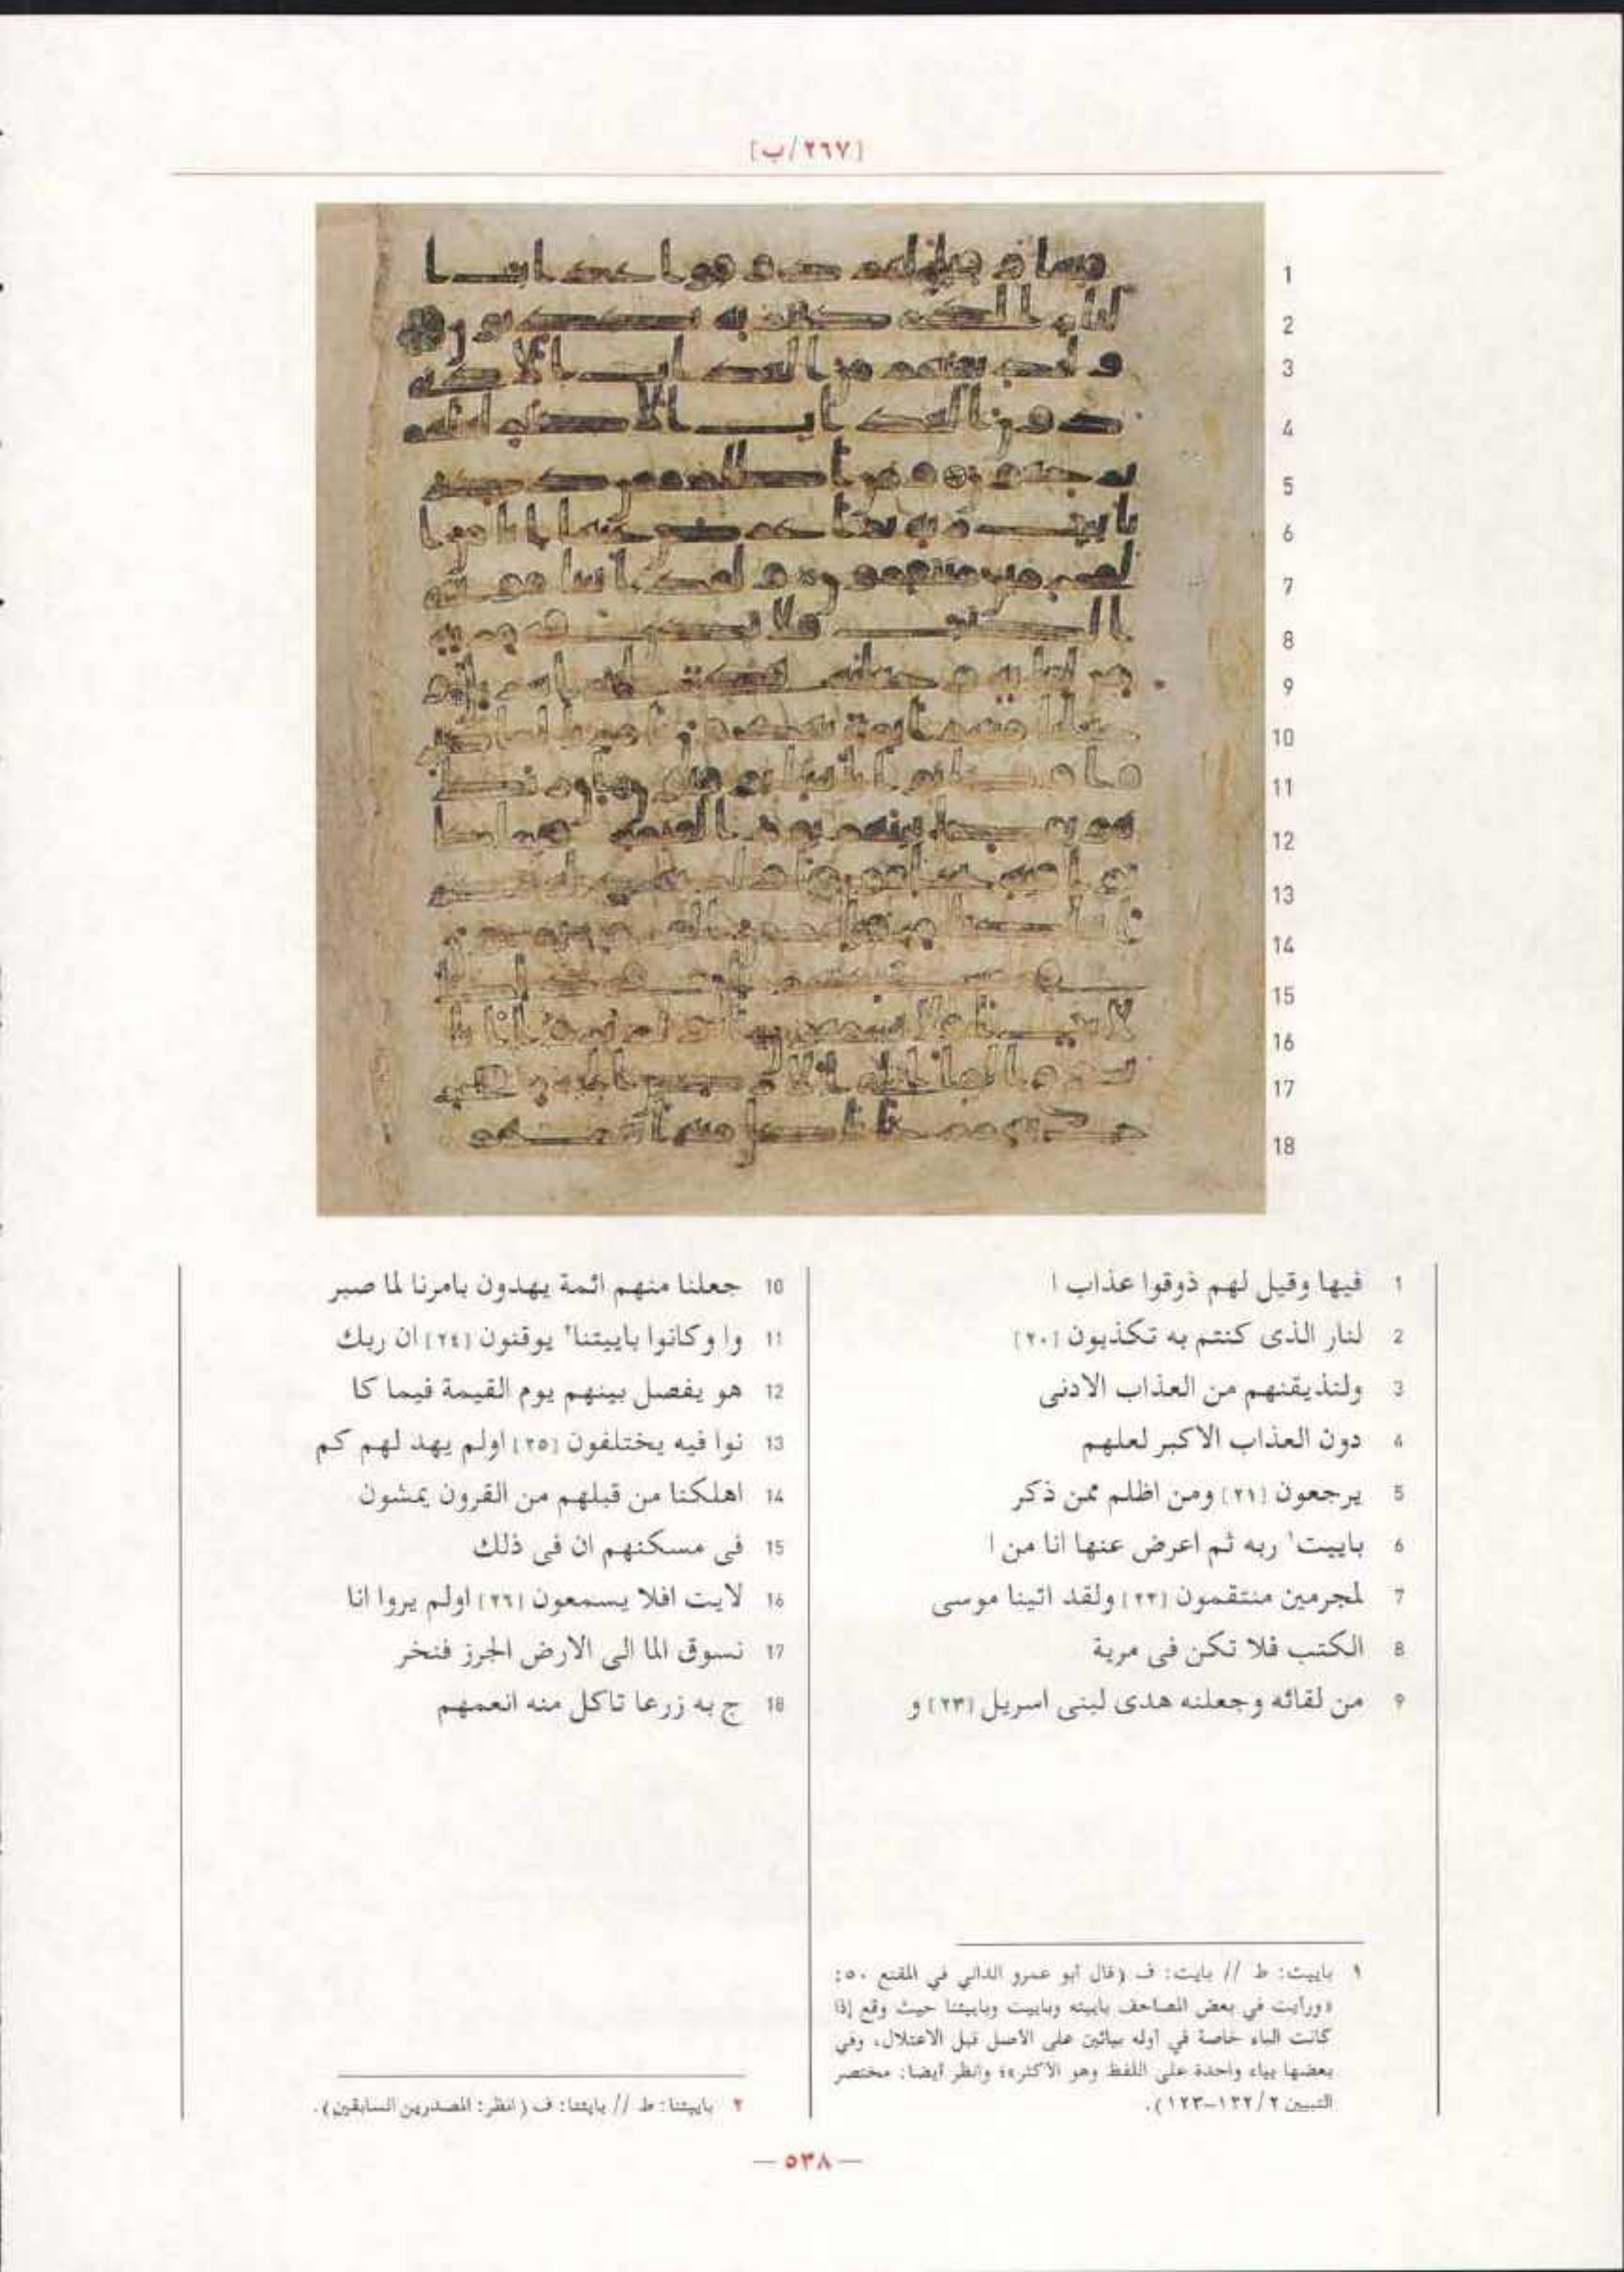 [٢٦٧/ب]
1 فيها وقيل لهم ذوقوا عذاب ا
2 لنار الذى كنتم به تكذبون [٢٠]
3 ولنذيقنهم من العذاب الادنى
4 دون العذاب الاكبر لعلهم
5 يرجعون [٢١] ومن اظلم ممن ذكر
6 باييت١ ربه ثم اعرض عنها انا من ا
7 لمجرمين منتقمون [٢٢] ولقد اتينا موسى
8 الكتب فلا تكن فى مرية
9 من لقائه وجعلنه هدى لبنى اسريل [٢٣] و
10 جعلنا منهم ائمة يهدون بامرنا لما صبر
11 وا وكانوا باييتنا٢ يوقنون [٢٤] ان ربك
12 هو يفصل بينهم يوم القيمة فيما كا
13 نوا فيه يختلفون [٢٥] اولم يهد لهم كم
14 اهلكنا من قبلهم من القرون يمشون
15 فى مسكنهم ان فى ذلك
16 لايت افلا يسمعون [٢٦] اولم يروا انا
17 نسوق الما الى الارض الجرز فنخر
18 ج به زرعا تاكل منه انعمهم
١ باييت: ط // بايت: ف (قال أبو عمرو الداني في المقنع ٥٠:
«ورأيت في بعض المصاحف باييته وباييت وباييتنا حيث وقع إذا
كانت الباء خاصة في أوله بيائين على الأصل قبل الاعتلال، وفي
بعضها بياء واحدة على اللفظ وهو الأكثر»؛ وانظر أيضا: مختصر
التبيين ٢/ ١٢٢-١٢٣).
٢ باييتنا: ط // بايتنا: ف (انظر: المصدرين السابقين).
— ٥٣٨ —